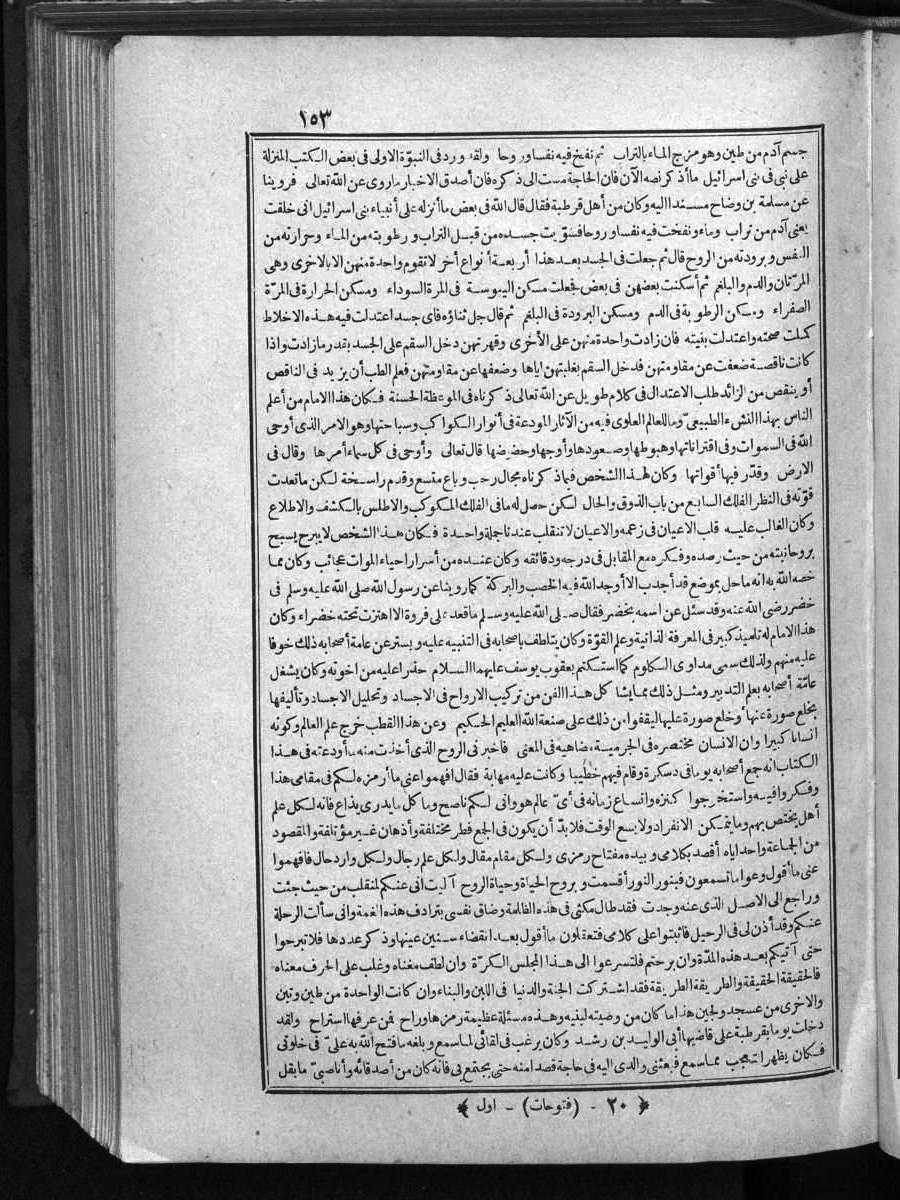 ١٥٣
جسم آدم من طين وهو مزج الماء بالتراب ثم نفخ فيه نفسا وروحا ولقد ورد فى النبوّة الاولى فى بعض الكتب المنزلة
على نبى فى بنى اسرائيل ما أذكر نصه الآن فان الحاجة مست الى ذكره فان أصدق الاخبار ما روى عن الله تعالى فروينا
عن مسلمة بن وضاح مسندا اليه وكان من أهل قرطبة فقال قال الله فى بعض ما أنزله على أنبياء بنى اسرائيل انى خلقت
يعنى آدم من تراب وماء ونفخت فيه نفسا وروحا فسوّيت جسده من قبل التراب ورطوبته من الماء وحرارته من
النفس وبرودته من الروح قال ثم جعلت فى الجسد بعد هذا أربعة أنواع أخر لا تقوم واحدة منهن الا بالاخرى وهى
المرّتان والدم والبلغم ثم أسكنت بعضهن فى بعض فجعلت مسكن اليبوسة فى المرة السوداء ومسكن الحرارة فى المرّة
الصفراء ومسكن الرطوبة فى الدم ومسكن البرودة فى البلغم ثم قال جل ثناؤه فاى جسد اعتدلت فيه هذه الاخلاط
كملت صحته واعتدلت بنيته فان زادت واحدة منهن على الأخرى وقهرتهن دخل السقم على الجسد بقدر ما زادت واذا
كانت ناقصة ضعفت عن مقاومتهن فدخل السقم بغلبتهن اياها وضعفها عن مقاومتهن فعلم الطب أن يزيد فى الناقص
أو ينقص من الزائد طلب الاعتدال فى كلام طويل عن الله تعالى ذكرناه فى الموعظة الحسنة فكان هذا الامام من أعلم
الناس بهذا النشء الطبيعىّ وما للعالم العلوى فيه من الآثار المودعة فى أنوار الكواكب وسباحتها وهو الامر الذى أوحى
الله فى السموات وفى اقتراناتها وهبوطها وصعودها وأوجها وحضيضها قال تعالى وأوحى فى كل سماء أمرها وقال فى
الارض وقدّر فيها أقواتها وكان لهذا الشخص فيما ذكرناه مجال رحب وباع متسع وقدم راسخة لكن ما تعدت
قوّته فى النظر الفلك السابع من باب الذوق والحال لكن حصل له ما فى الفلك المكوكب والاطلس بالكشف والاطلاع
وكان الغالب عليه قلب الاعيان فى زعمه والاعيان لا تنقلب عندنا جملة واحدة فكان هذا الشخص لا يبرح يسبح
بروحانيته من حيث رصده وفكره مع المقابل فى درجه ودقائقه وكان عنده من أسرار احياء الموات عجائب وكان مما
خصه الله به انه ما حل بموضع قد أجدب الا أوجد الله فيه الخصب والبركة كما روينا عن رسول الله صلى الله عليه وسلم فى
خضر رضى الله عنه وقد سئل عن اسمه بخضر فقال صلى الله عليه وسلم ما قعد على فروة الا اهتزت تحته خضراء وكان
هذا الامام له تلميذ كبير فى المعرفة الذاتية وعلم القوّة وكان يتلطف باصحابه فى التنبيه عليه ويستر عن عامة أصحابه ذلك خوفا
عليه منهم ولذلك سمى مداوى الكلوم كما استكتم يعقوب يوسف عليهما السلام حذرا عليه من اخوته وكان يشغل
عامّة أصحابه بعلم التدبير ومثل ذلك مما يشا كل هذا الفن من تركيب الارواح فى الاجساد وتحليل الاجساد وتأليفها
بخلع صورة عنها أو خلع صورة عليها ليقفوا من ذلك على صنعة الله العليم الحكيم وعن هذا القطب خرج علم العالم وكونه
انسانا كبيرا وان الانسان مختصره فى الجرمية مضاهيه فى المعنى فاخبرنى الروح الذى أخذت منه ما أودعته فى هذا
الكتاب انه جمع أصحابه يوما فى دسكرة وقام فيهم خطيبا وكانت عليه مهابة فقال افهموا عنى ما أرمزه لكم فى مقامى هذا
وفكروا فيه واستخرجوا كنزه واتساع زمانه فى أىّ عالم هو وانى لكم ناصح وما كل ما يدرى يذاع فانه لكل علم
أهل يختص بهم وما يتمكن الانفراد ولا يسع الوقت فلا بدّ أن يكون فى الجمع فطر مختلفة وأذهان غير مؤتلفة والمقصود
من الجماعة واحد اياه أقصد بكلامى وبيده مفتاح رمزى ولكل مقام مقال ولكل علم رجال ولكل وارد حال فافهموا
عنى ما أقول وعوا ما تسمعون فبنور النور أقسمت وبروح الحياة وحياة الروح آليت انى عنكم لمنقلب من حيث جئت
وراجع الى الاصل الذى عنه وجدت فقد طال مكثى فى هذه الظلمة وضاق نفسى بترادف هذه الغمة وانى سألت الرحلة
عنكم وقد أذن لى فى الرحيل فاثبتوا على كلامى فتعقلون ما أقول بعد انقضاء سنين عينها وذكر عددها فلا تبرحوا
حتى آتيكم بعد هذه المدّة وان برحتم فلتسرعوا الى هذا المجلس الكرّة وان لطف مغناه وغلب على الحرف معناه
فالحقيقة الحقيقة والطريقة الطريقة فقد اشتركت الجنة والدنيا فى اللبن والبناء وان كانت الواحدة من طين وتبن
والاخرى من عسجد ولجين هذا ما كان من وصيته لبنيه وهذه مسئلة عظيمة رمزها وراح فمن عرفها استراح ولقد
دخلت يوما بقرطبة على قاضيها أبى الوليد بن رشد وكان يرغب فى لقائى لما سمع وبلغه ما فتح الله به علىّ فى خلوتى
فكان يظهر التعجب مما سمع فبعثنى والدى اليه فى حاجة قصدا منه حتى يجتمع بى فانه كان من أصدقائه وأنا صبىّ ما بقل
﴿ ٢٠ - (فتوحات) - اول ﴾